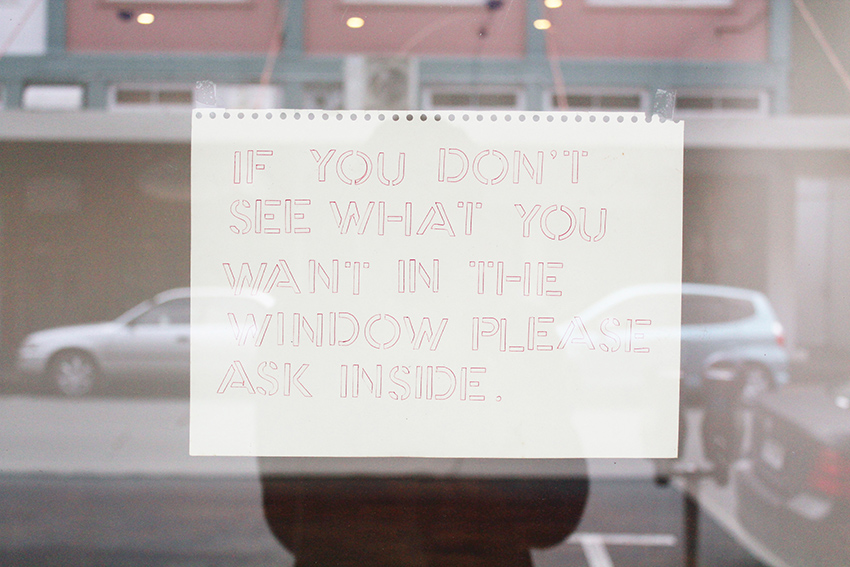 IF YOU DON'T
SEE WHAT YOU
WANT IN THE
WINDOW PLEASE
ASK INSIDE.